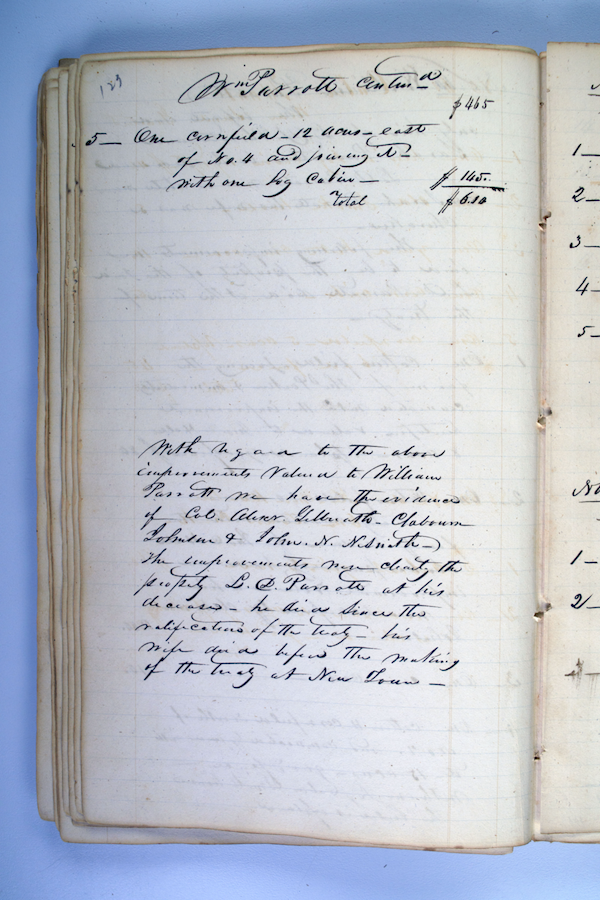 129
Wm Parrott contind
$465
5 — One cornfield – 12 acres – east
of No. 4 and joining it –
with one log cabin — $ 145.
Total $ 610
With regard to the above
improvements valued to William
Parrott we have the evidence
of Col. Alexr. Gilbreath – Clabourn
Johnson & John. N. Nesmith –
The improvements were clearly the
property L. D. Parrott at his
decease – he died since the
ratification of the treaty – his
wife died before the making
of the treaty at New Town —
1 —
2 —
3 —
4 —
5 —
No
1 —
2 —